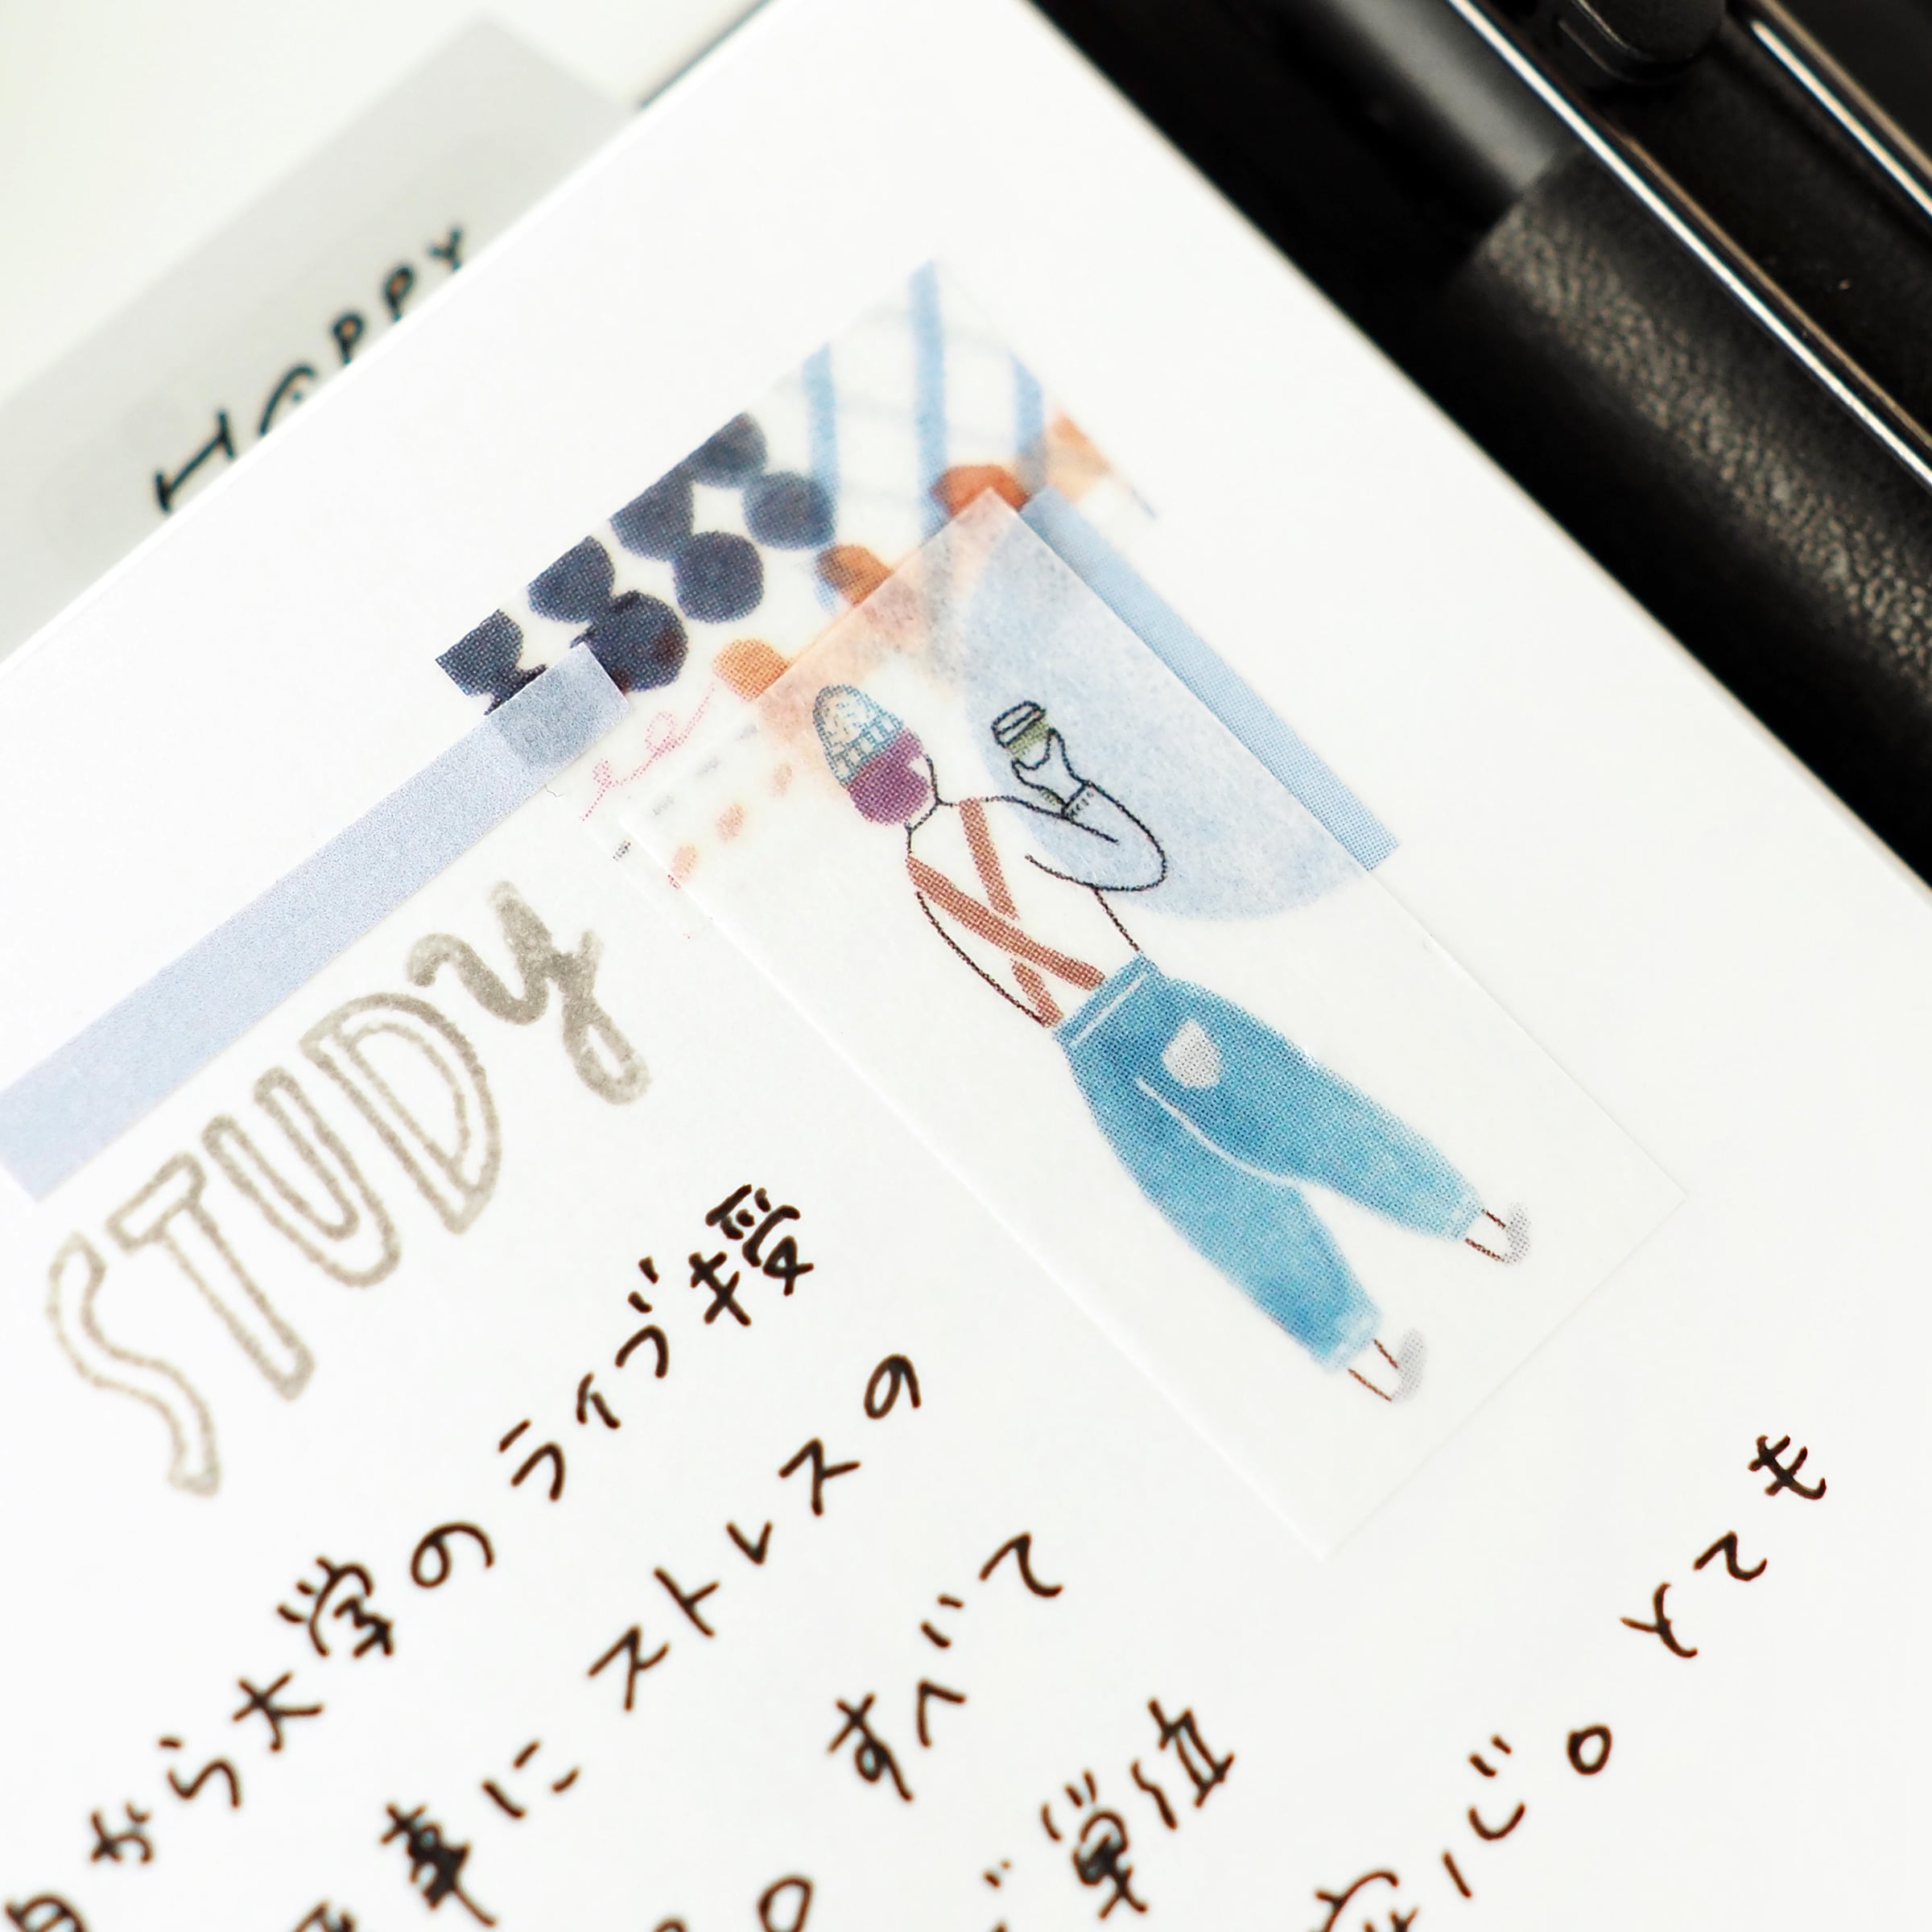 HAPPY
STUDY
から大学のライブ授
事にストレスの
すべて
単位
安心。とても